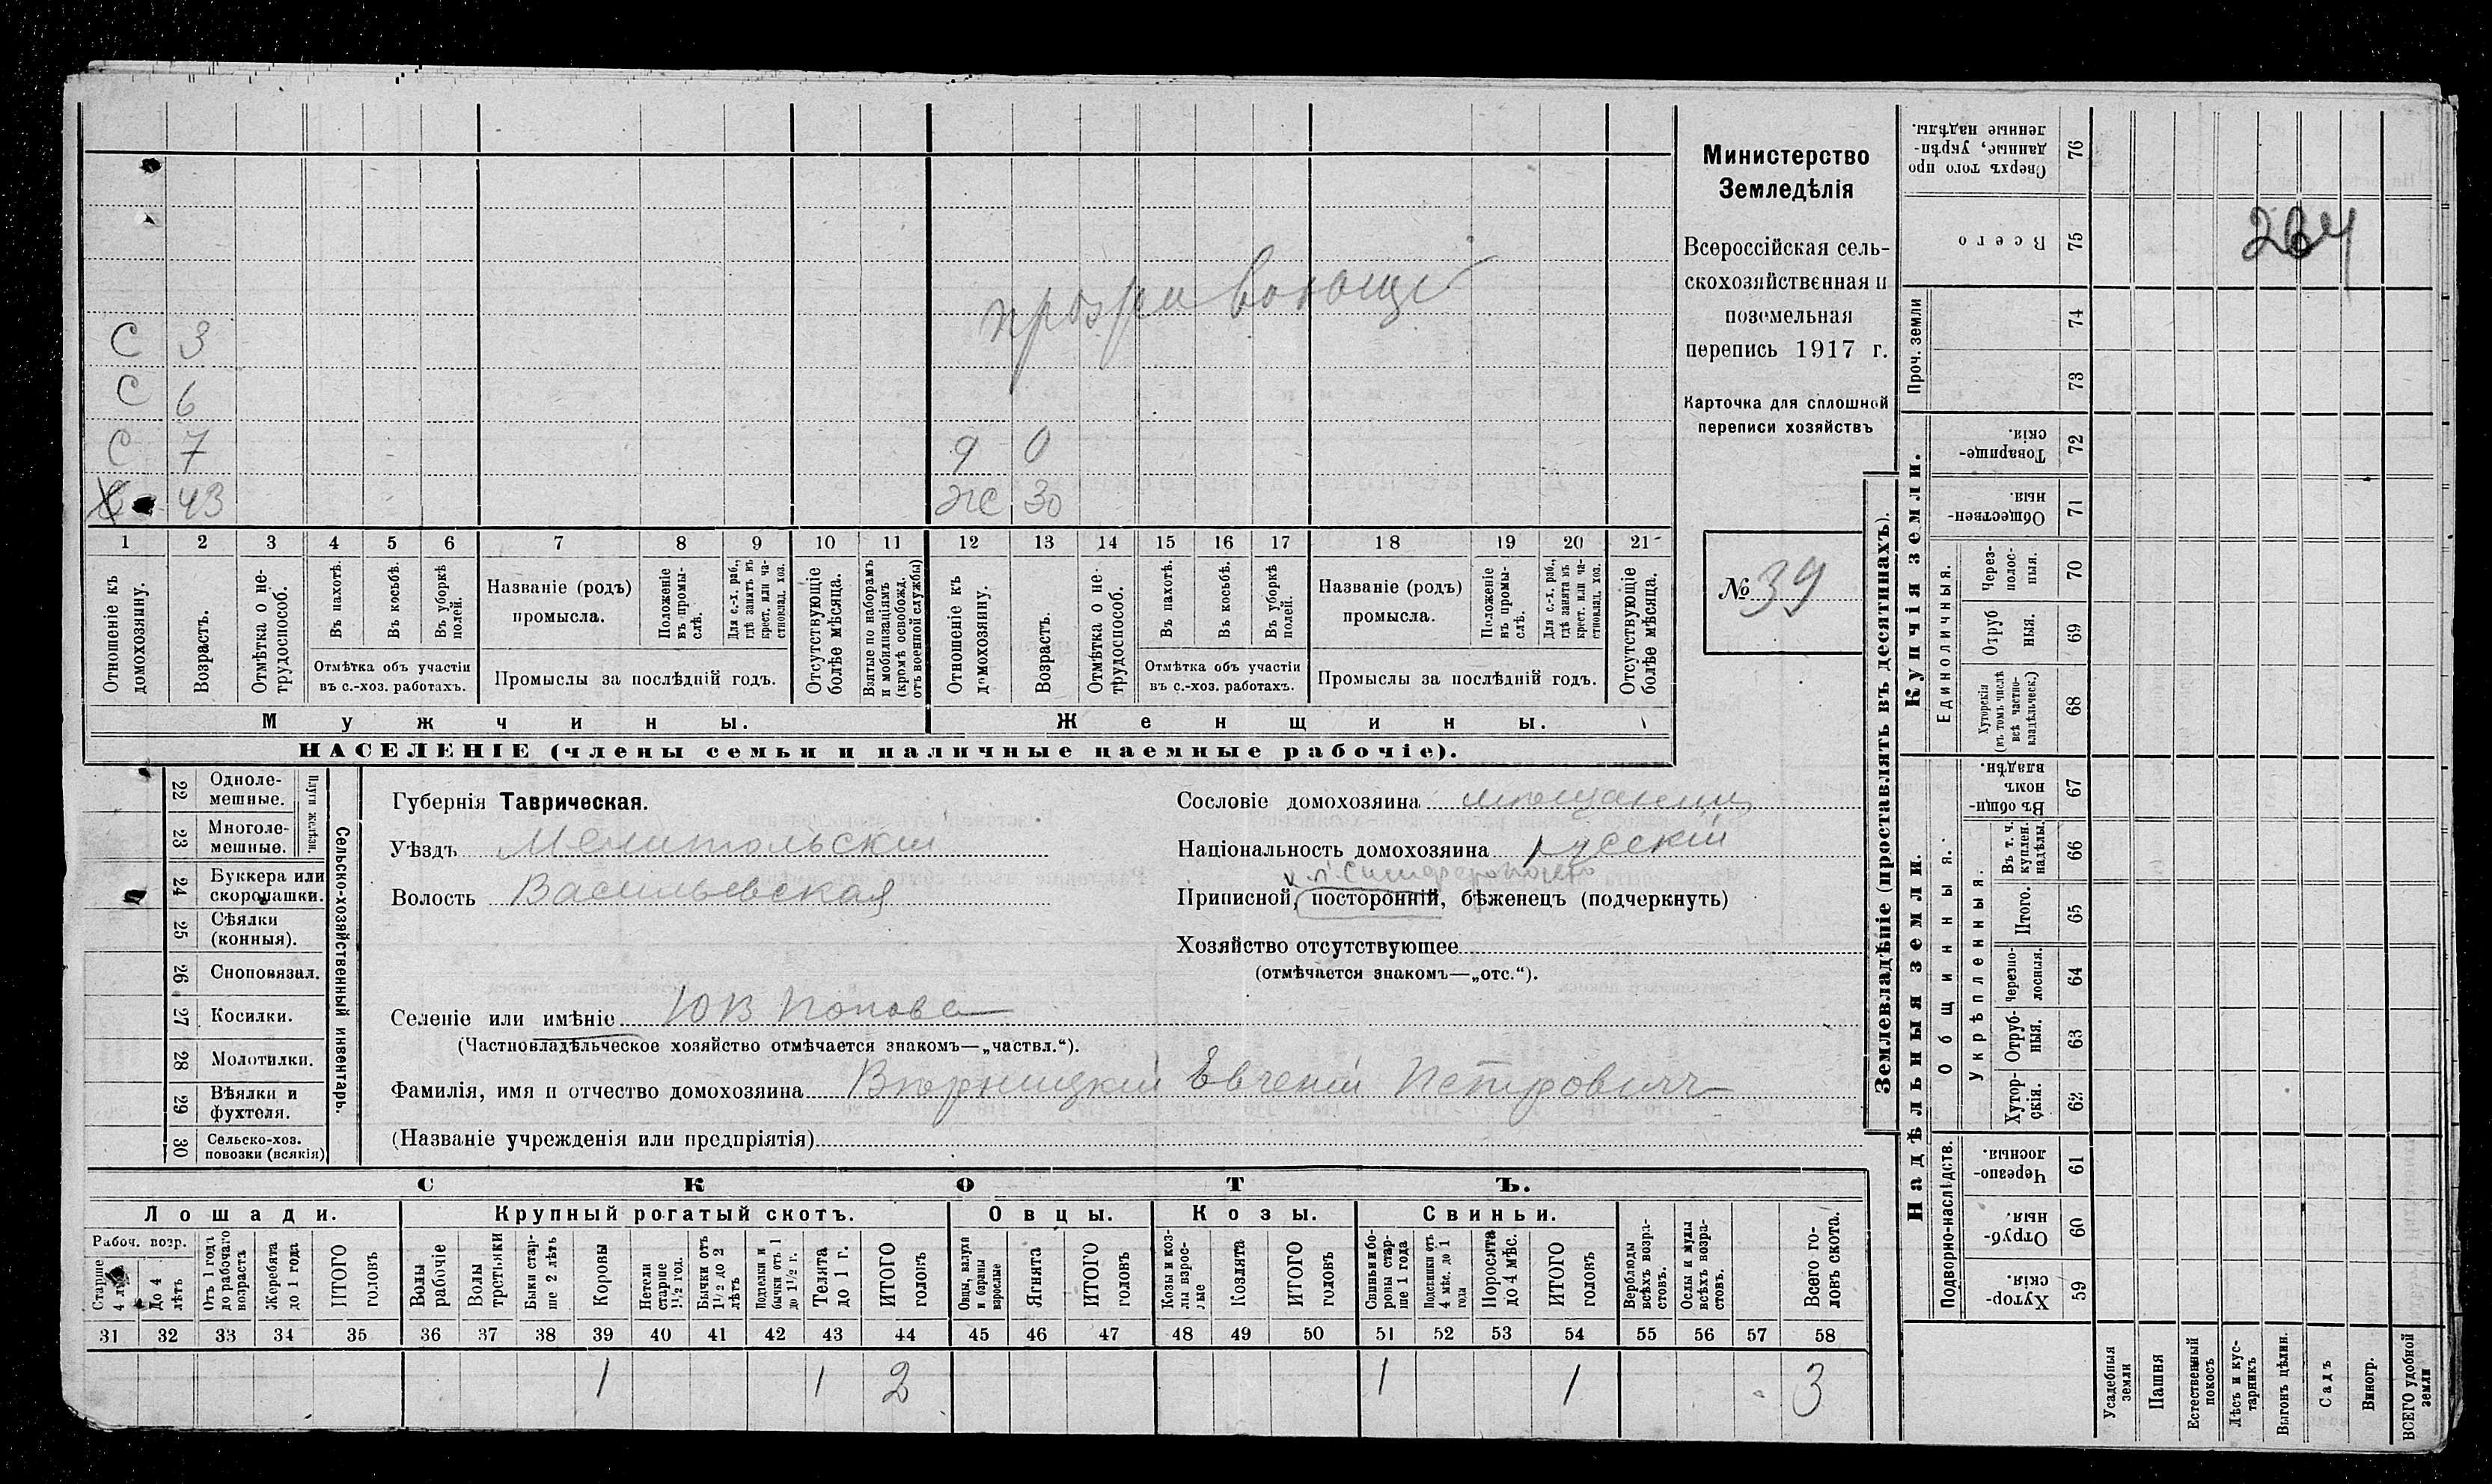 Министерство
Земледѣлія
Всероссійская сель-
скохозяйственная и
поземельная
перепись 1917 г.
Карточка для сплошной
переписи хозяйствъ
№ 39
264
С 3
С 6
С 7
43
д 0
ж 30
1 2 3 4 5 6 7 8 9 10 11 12 13 14 15 16 17 18 19 20 21
Отношеніе къ домохозяину.
Возрастъ.
Отмѣтка о не-трудоспособ.
Въ пахотѣ.
Въ косьбѣ.
Въ уборкѣ полей.
Отмѣтка объ участіи
въ с.-хоз. работахъ.
Названіе (родъ)
промысла.
Положеніе въ промы-слѣ.
Для с.-х. раб., гдѣ занятъ въ крест. или ча-стновлад. хоз.
Промыслы за послѣдній годъ.
Отсутствующіе болѣе мѣсяца.
Взятые по наборамъ и мобилизаціямъ (кромѣ освобожд. отъ военной службы)
Отношеніе къ домохозяину.
Возрастъ.
Отмѣтка о не трудоспособ.
Въ пахотѣ.
Въ косьбѣ.
Въ уборкѣ полей.
Отмѣтка объ участіи
въ с.-хоз. работахъ.
Названіе (родъ)
промысла.
Положеніе въ промы-слѣ.
Для с.-х. раб., гдѣ занята въ крест. или ча-стновлад. хоз.
Промыслы за послѣдній годъ.
Отсутствующіе болѣе мѣсяца.
Мужчины.
Женщины.
НАСЕЛЕНІЕ (члены семьи и наличные наемные рабочіе).
Сельско-хозяйственный инвентарь.
Плуги желѣзн.
22 Одноле-мешные.
23 Многоле-мешные.
24 Буккера или скоропашки.
25 Сѣялки (конныя).
26 Сноповязал.
27 Косилки.
28 Молотилки.
29 Вѣялки и фухтеля.
30 Сельско-хоз. повозки (всякія)
Губернія Таврическая.
Уѣздъ Мелитопольскій
Волость Васильевская
Сословіе домохозяина мѣщанинъ
Національность домохозяина русскій
г. Симферополь
Приписной, посторонній, бѣженецъ (подчеркнуть)
Хозяйство отсутствующее
(отмѣчается знакомъ—„отс.“).
Селеніе или имѣніе ЮВ Попова
(Частновладѣльческое хозяйство отмѣчается знакомъ—„частвл.“).
Фамилія, имя и отчество домохозяина Евгеній Петровичъ
(Названіе учрежденія или предпріятія)
СКОТЪ.
Лошади.
Крупный рогатый скотъ.
Овцы.
Козы.
Свиньи.
Рабоч. возр.
Старше 4 лѣтъ
До 4 лѣтъ
Отъ 1 года до рабочаго возраста
Жеребята до 1 года
ИТОГО головъ
Волы рабочіе
Волы третьяки
Быки стар-ше 2 лѣтъ
Коровы
Нетели старше 1½ год.
Бычки отъ 1½ до 2 лѣтъ
Подтелки и бычки отъ 1 до 1½ г.
Телята до 1 г.
ИТОГО головъ
Овцы, валухи и бараны взрослые
Ягнята
ИТОГО головъ
Козы и коз-лы взрос-лые
Козлята
ИТОГО головъ
Свиньи и бо-ровы стар-ше 1 года
Подсвинки отъ 4 мѣс. до 1 года
Поросята до 4 мѣс.
ИТОГО головъ
Верблюды всѣхъ возра-стовъ.
Ослы и мулы всѣхъ возра-стовъ.
Всего го-ловъ скота.
31 32 33 34 35 36 37 38 39 40 41 42 43 44 45 46 47 48 49 50 51 52 53 54 55 56 57 58
1 1 2 1 1 3
Землевладѣніе (проставлять въ десятинахъ).
Проч. земли
Купчія земли.
Единоличныя.
Надѣльныя земли.
Общинныя.
Укрѣпленныя.
Подворно-наслѣдств.
Сверхъ того про данные, укрѣп-ленные надѣлы. 76
Всего 75
74
73
Товарище-скія. 72
Обществен-ныя. 71
Через-полос-ныя. 70
Отруб ныя. 69
Хуторскія (въ томъ числѣ всѣ частно-владѣльческ.) 68
Въ общи-номъ владѣн. 67
Въ т. ч. куплен. надѣлы. 66
Итого. 65
Черезпо-лосныя. 64
Отруб-ныя. 63
Хутор-скія. 62
Черезпо-лосныя. 61
Отруб-ныя. 60
Хутор-скія. 59
Усадебныя земли
Пашня
Естественный покосъ
Лѣсъ и кус-тарникъ
Выгонъ цѣлин.
Садъ
Виногр.
ВСЕГО удобной земли